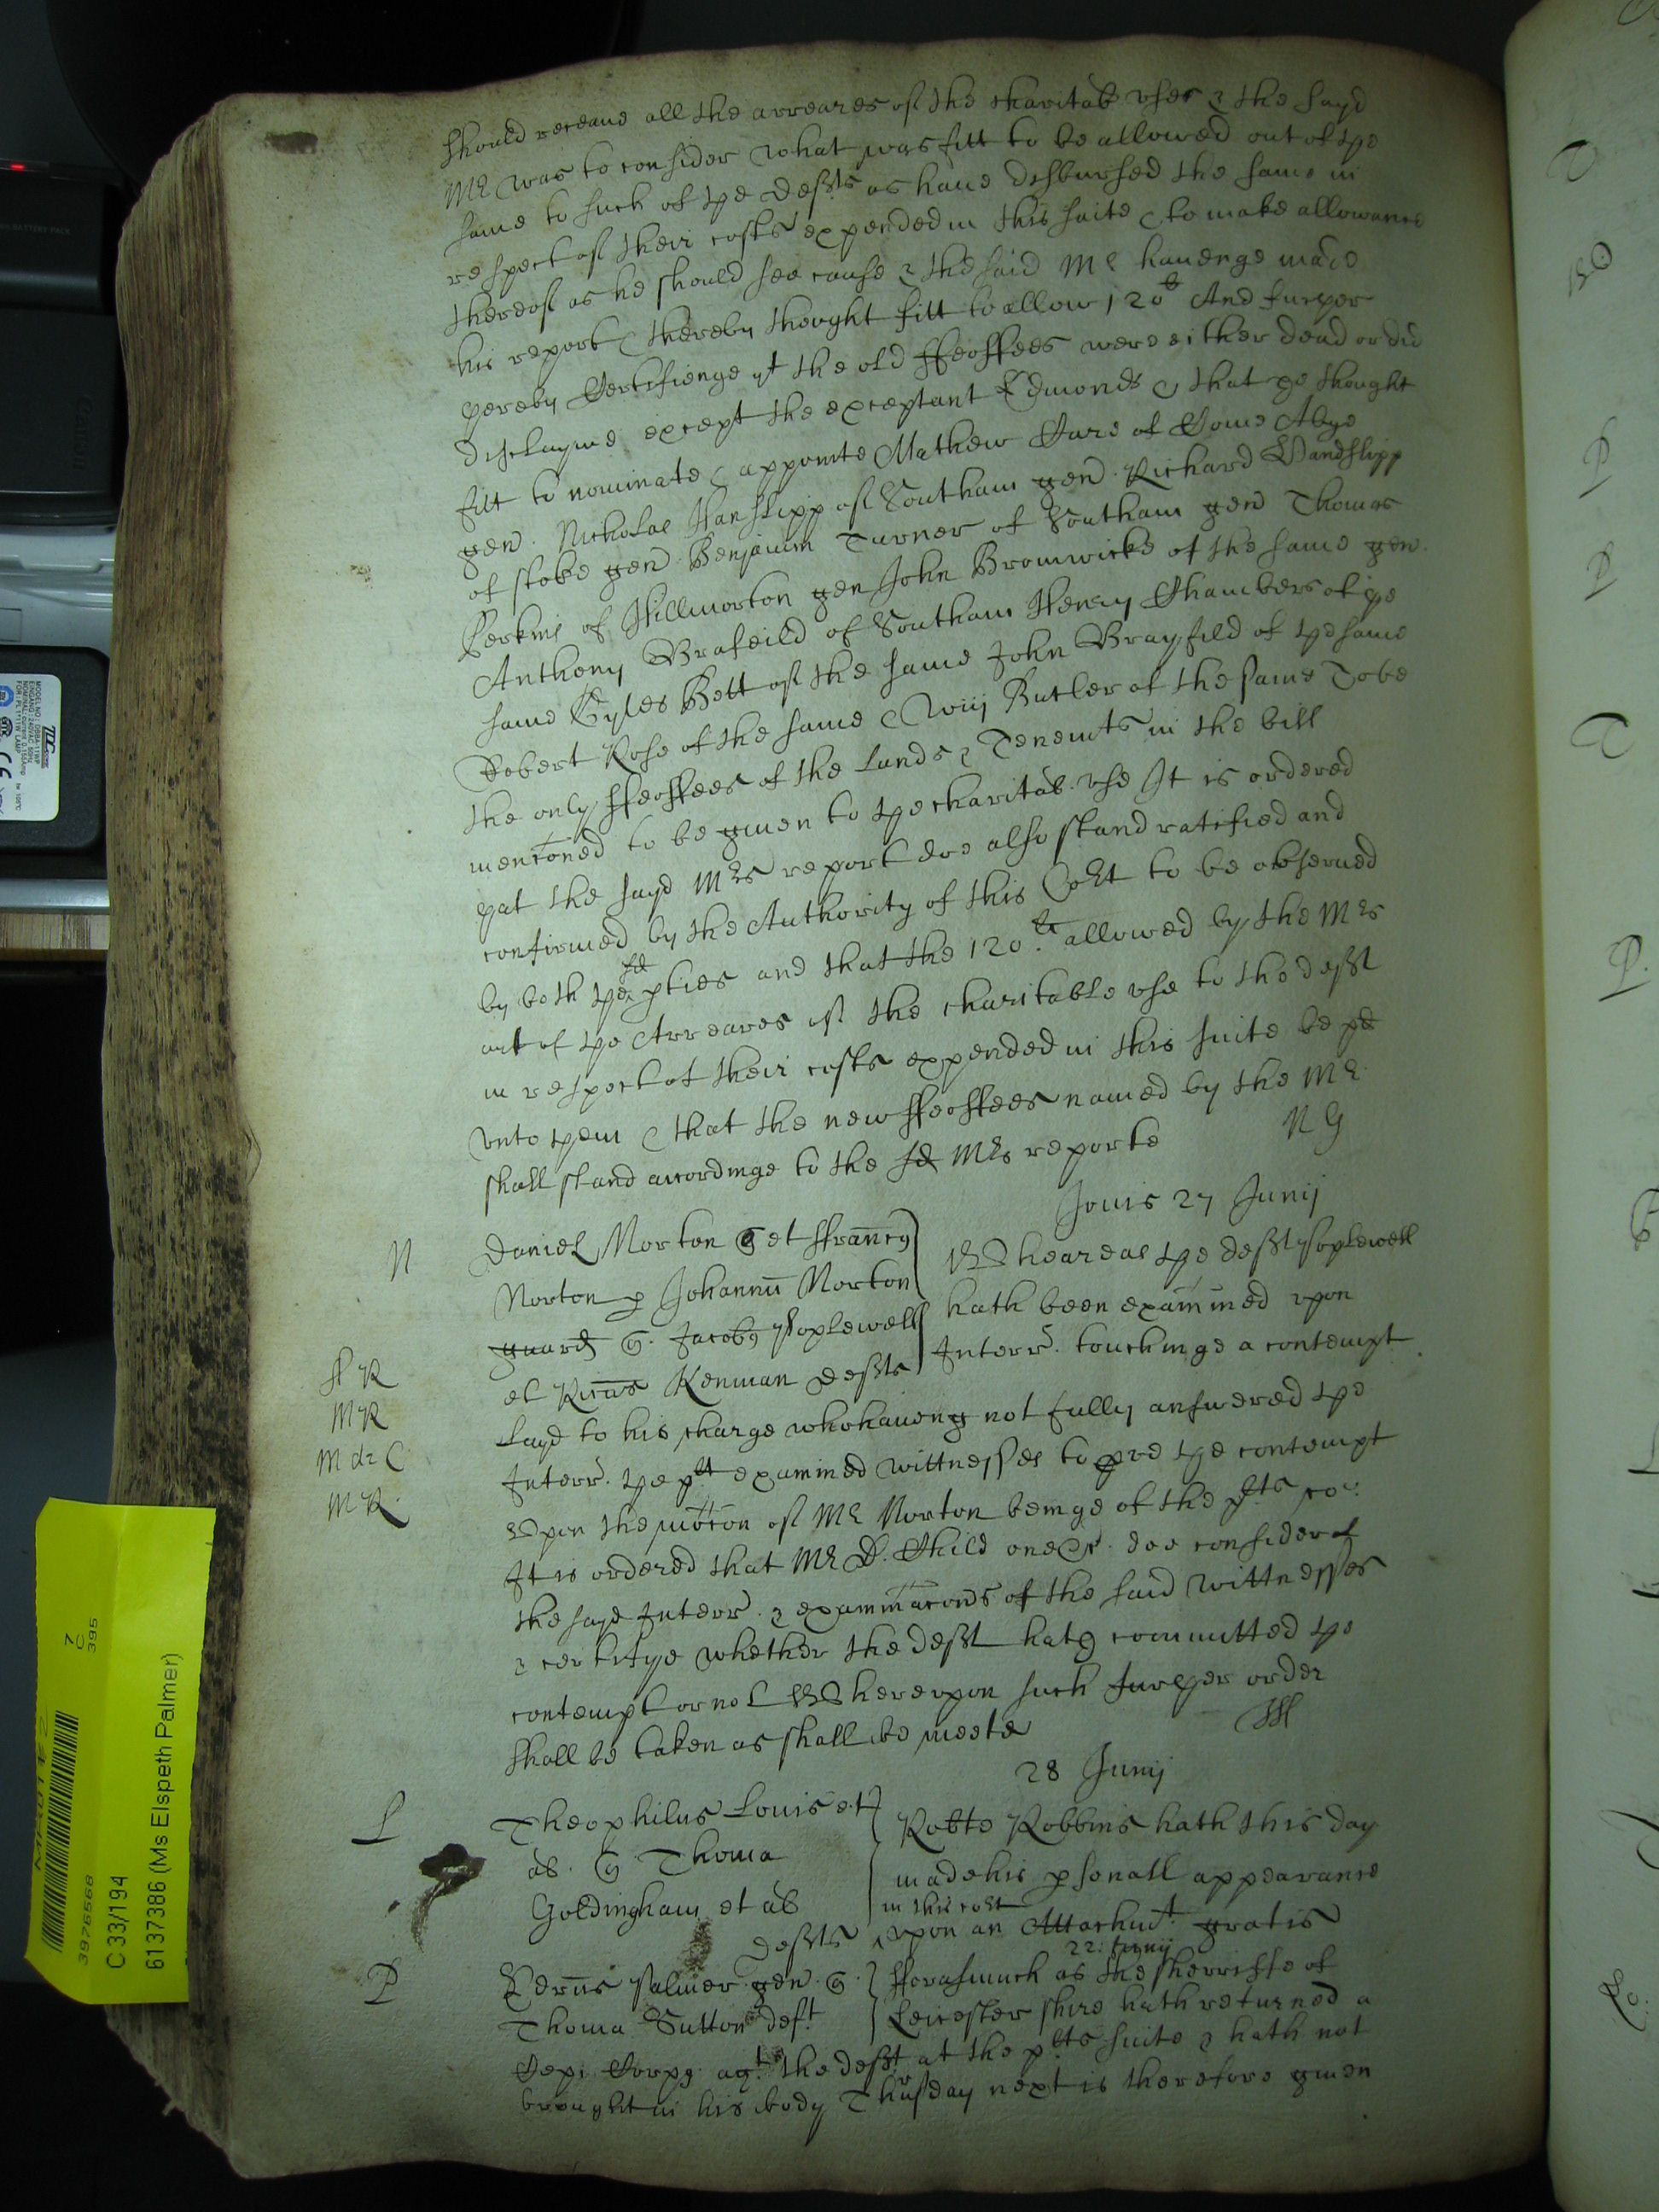 should receaue all the arreares of the charitab vses & the sayd
Mr was to consider what was fitt to be allowed out of ye
same to such of ye defts as haue disbursed the same in
respect of their costs expended in this suite & to make allowance
thereof as he should see cause & the said Mr hauenge made
his report & thereby thought fitt to allow 120li And furyer
yereby Certifienge yt the old ffeoffees were either dead or did
disclayme except the exceptant Edmonds & that he thought
fitt to nominate & appointe Mathew
gen. Nicholas Hanslipp of Southam gen. Richard Wandslipp
of stoke gen. Benjamin Turner of Southam gen Thomas
Perkins of Hillmorton gen John Bromwicke of the same gen.
Anthony Brafeild of Southam Henry Chambers of ye
same Gyles Bett of the same John Brayfild of ye same
Robert Rose of the same & Wm Butler of the same To be
the only ffeoffees of the lands & Tenemts in the bill
mencioned to be giuen to ye charitab. vse It is ordered
yat the sayd Mrs report doe also stand ratified and
confirmed by the Authority of this Cort to be obserued
by both ye sd pties and that the 120li allowed by the Mrs
out of ye Arreares of the charitable vse to the deft
in respect of their costs expended in this suite be pd
vnto yem & that the new ffeoffees named by the Mr
shall stand accordinge to the sd Mrs reporte
N G
Jouis 27 Junij
N
Daniel Norton et ffrancus
Norton p Johannu Norton
guard Jacobus Poplewell
et Ricus Kenman defts
Whereas ye deft Poplewell
hath been examined vpon
Interr. touchinge a contempt
H R
M R
M dr C
M R
layd to his charge who haueng not fully answered ye
Interr. ye plt examined wittnesses to proe ye contempt
Vpon the mocion of Mr Norton beinge of the plts co:
It is ordered that Mr D. Child one &c. doe consider of
the sayd Interr. & examinacons of the said wittnesses
& certifye whether the deft hath committed ye
contempt or not Wherevpon such furyer order
shall be taken as shall be meete
28 Junij
L
Theophilus Louis et
ab. Thoma
Goldingham et ab
defts
Robte Robbins hath this day
made his psonall appearance
in this cort
vpon an Attachmt. gratis
22: Junij
P
Palmer gen.
Thoma Sutton deft
fforasmuch as the sherriffe of
Leicester shire hath returned a
Cepi Corpus agt the deft at the plts suite & hath not
brought in his body Thursday next is therefore giuen
MODEL NO : DB8A-11YWP
EINGANG : 240VAC 50Hz
FOR : PL11*1 LAMP
TDC
CE
Canon
BATTERY PACK
7
C
395
3976568
C 33/194
6137386 (Ms Elspeth Palmer)